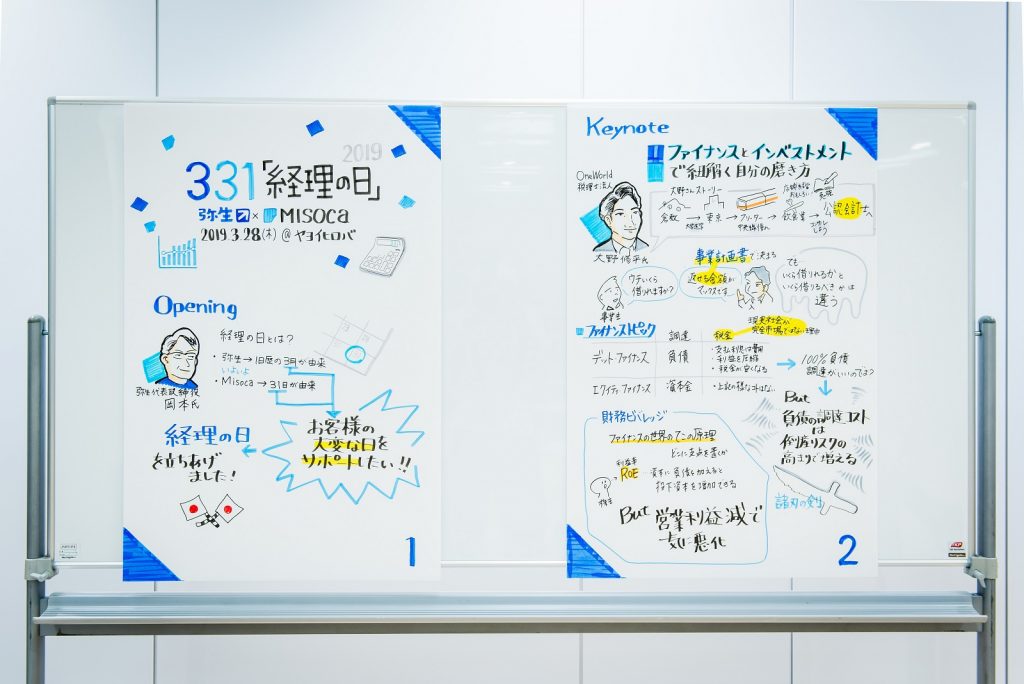 2019
331「経理の日」
弥生 × MISOCA
2019.3.28(木) @ ヤヨイヒロバ
Opening
経理の日とは？
・弥生→旧暦の3月が由来
いよいよ
・Misoca→31日が由来
弥生代表取締役
岡本氏
お客様の
大変な日を
サポートしたい!!
経理の日
を立ちあげ
ました!
1
Keynote
ファイナンスとインベストメント
で紐解く自分の磨き方
OneWorld
税理士法人
大野さんストーリー
倉敷→東京→フリーター→飲食業→公認会計士
大野修平氏
事業計画書で決まる
ウチいくら
借りれますか?
返せる金額が
マックスです
でも
いくら借りれるかと
いくら借りるべきかは
違う
ファイナンストピック
調達
税金
現実社会が
完全市場ではない理由
デットファイナンス
負債
・支払利息は費用
・利益を圧縮
・税金が安くなる
→100%負債
調達がいいのでは?
エクイティファイナンス
資本金
・上記の様なコトはない
But
負債の調達コスト
は
倒産リスクの
高まりで増える
諸刃の剣
財務レバレッジ
ファイナンスの世界のてこの原理
どこに支点を置くか
利益率
ROE
株主
資本に負債を加えると
投下資本を増加できる
But 営業利益減で
一気に悪化
2